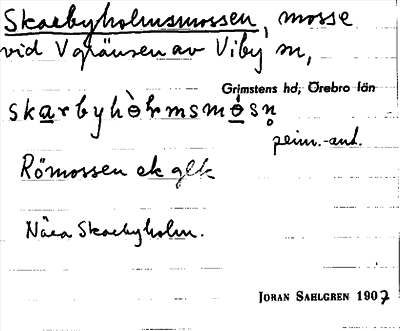 Skarbyholmsmossen, mosse
vid V gränsen av Viby sn,
Grimstens hd, Örebro län
skarbyhòłmsmósn̥
peim.-and.
Römossen ek glk
Nära Skarbyholm.
JORAN SAHLGREN 1907